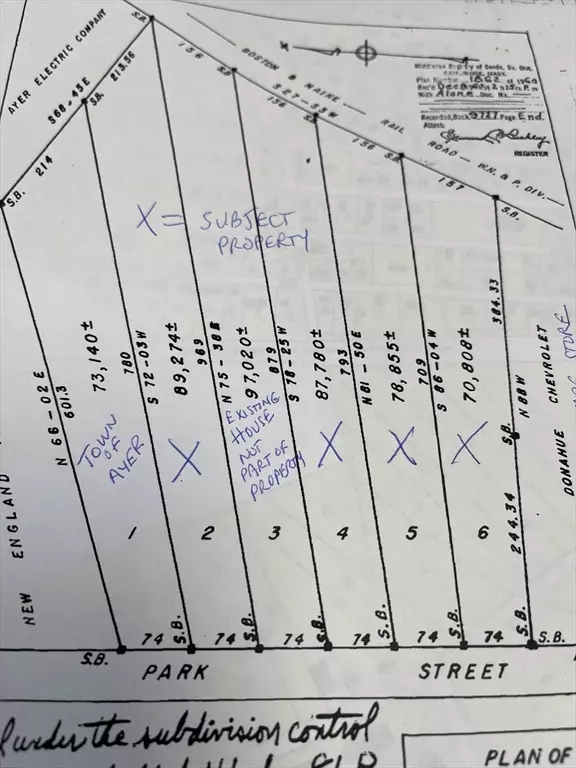 AYER ELECTRIC COMPANY
S 68-45 E
213.56
214
S.B.
S.B.
S.B.
156
BOSTON & MAINE — RAIL ROAD — W.N. & P. DIV.
S 27-55 W
156
156
S.B.
157
S.B.
Middlesex Registry of Deeds, So. Dist.
CAMBRIDGE, MASS.
Plan Number 1862 of 1960
With Alone Doc. No.
Recorded, Book 9727 Page End.
Attest:
REGISTER
X = SUBJECT
PROPERTY
NEW ENGLAND
N 66-02 E
601.3
73,140±
780
S 72-03 W
89,274±
969
N 75-38 E
97,020±
879
S 78-25 W
87,780±
793
N 81-50 E
78,855±
709
S 86-04 W
70,808±
384.33
N 88 W
S.B.
244.34
S.B.
DONAHUE CHEVROLET
STORE
TOWN
OF
AYER
X
EXISTING
HOUSE
NOT
PART OF
PROPERTY
X
X
X
1
2
3
4
5
6
S.B.
74
S.B.
74
S.B.
74
74
S.B.
74
S.B.
74
S.B.
PARK STREET
under the subdivision control
PLAN OF